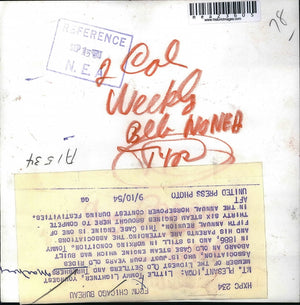 REFERENCE
N. E. A
2 Col
Weekly
A1534
78
CHXP 234
FROM CHICAGO BUREAU
MT. PLEASANT, IOWA: LITTLE TOMMY
MEMBER OF THE MIDWEST OLD SETTLERS AND THRESHERS
ASSOCIATION, WHO IS JUST FOUR YEARS OLD RIDES
ABOARD AN OLD CASE STEAM ENGINE WHICH WAS BUILT
IN 1886, AND IS STILL IN WORKING CONDITION. TOMMY
AND HIS PARENTS ARE ATTENDING THE ASSOCIATIONS
FIFTH ANNUAL REUNION. THIS CASE ENGINE IS ONE OF
THIRTY SIX STEAM ENGINES BROUGHT HERE TO COMPETE
IN THE ANNUAL HORSEPOWER CONTEST DURING FESTIVITIES.
AFT GG 9/10/54
UNITED PRESS PHOTO